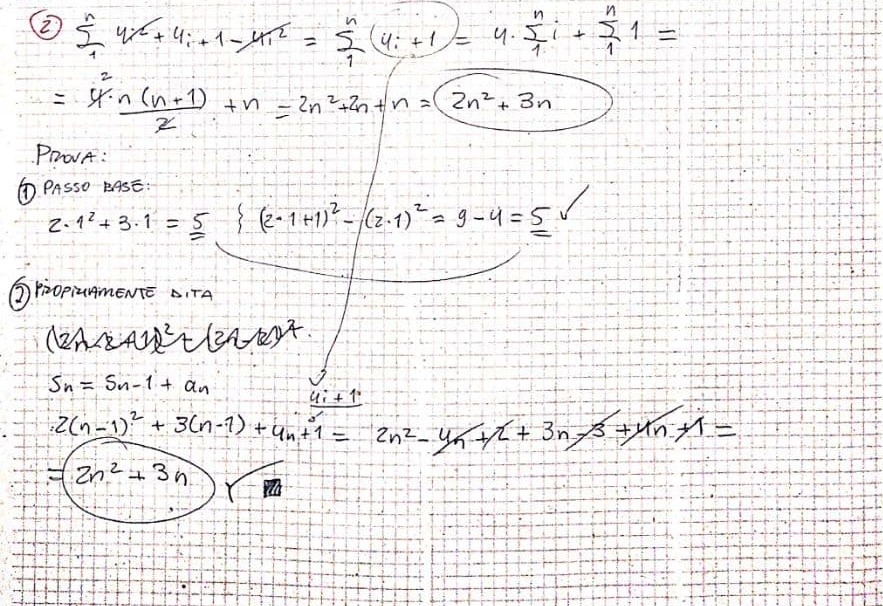 ② ∑₁ⁿ 4i² + 4i + 1 - 4i² = ∑₁ⁿ (4i + 1) = 4 · ∑₁ⁿ i + ∑₁ⁿ 1 =
= 4 · n(n+1)/2 + n = 2n² + 2n + n = 2n² + 3n
PROVA:
① PASSO BASE:
2·1² + 3·1 = 5 } (2·1+1)² - (2·1)² = 9 - 4 = 5 ✓
② PROPRIAMENTE DITA
Sn = Sn-1 + an
4i + 1
2(n-1)² + 3(n-1) + 4n + 1 = 2n² - 4n + 2 + 3n - 3 + 4n + 1 =
= 2n² + 3n ✓